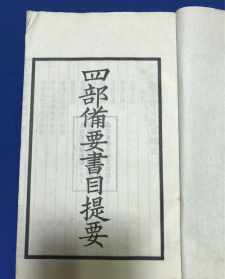 四部備要書目提要